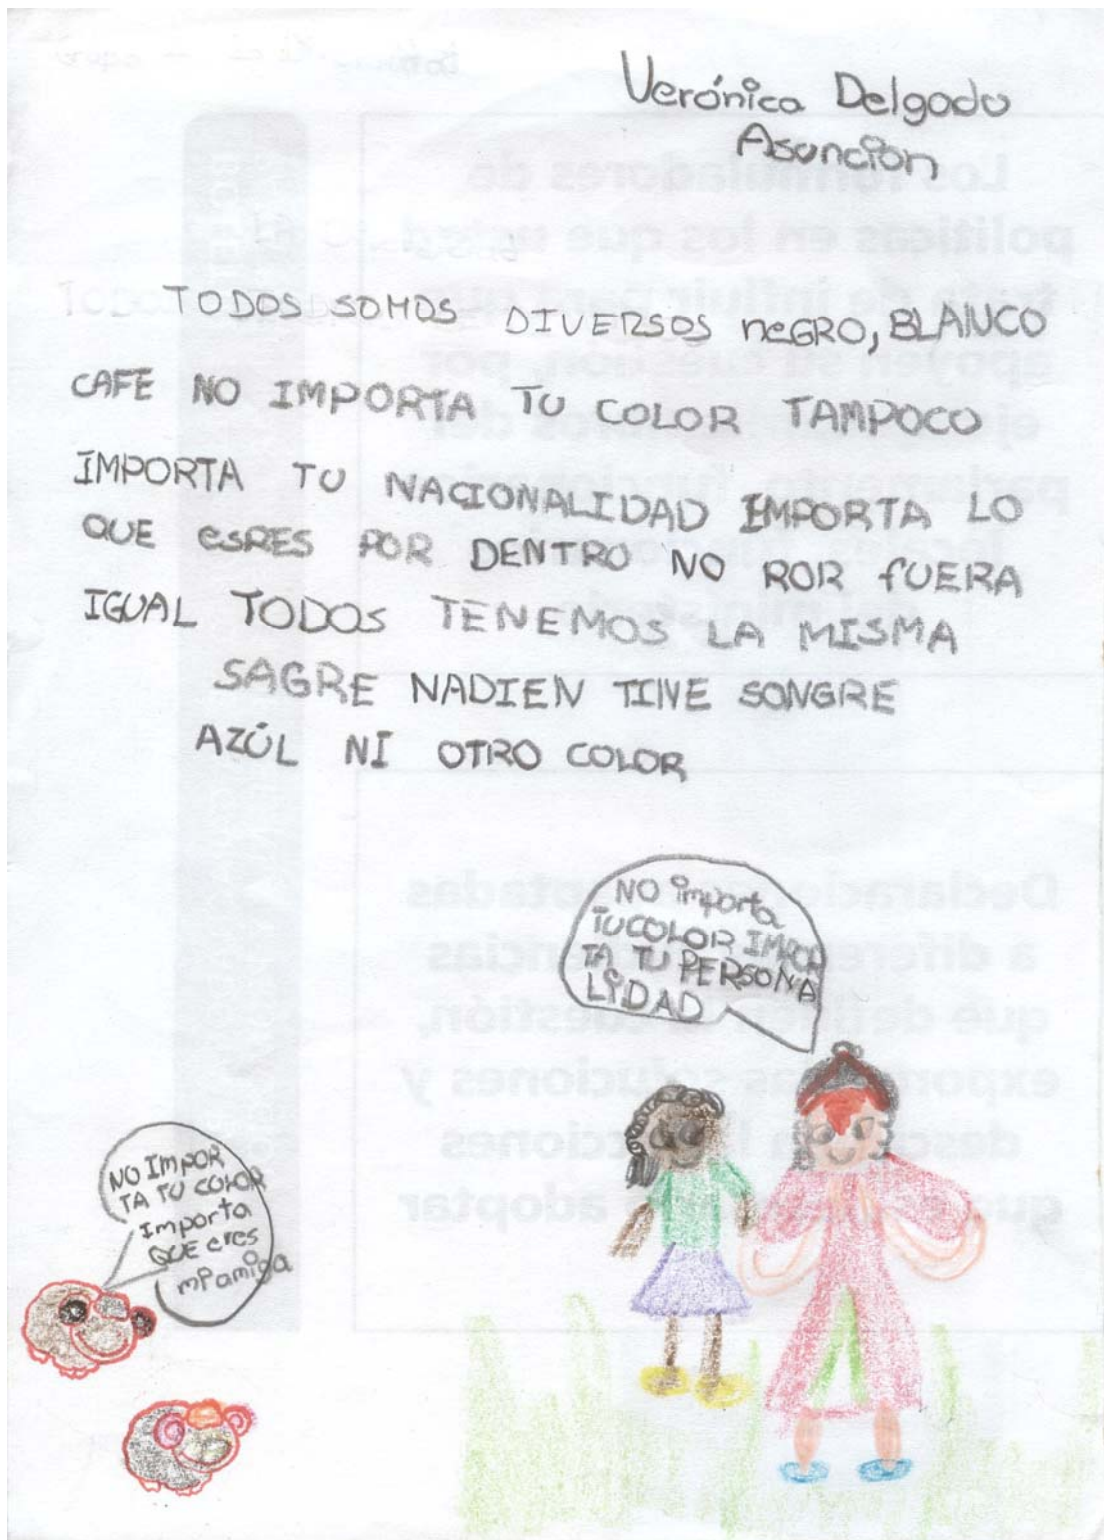 Verónica Delgado
Asuncion
TODOS SOMOS DIVERSOS neGRO, BLANCO
CAFE NO IMPORTA TU COLOR TAMPOCO
IMPORTA TU NACIONALIDAD IMPORTA LO
QUE esRES POR DENTRO NO ROR fUERA
IGUAL TODOS TENEMOS LA MISMA
SAGRE NADIEN TINE SONGRE
AZÚL NI OTRO COLOR
NO importa
TU COLOR IMPOR
TA TU PERSONA
LIDAD
NO IMPOR
TA TU COLOR
Importa
QUE eres
mi amiga